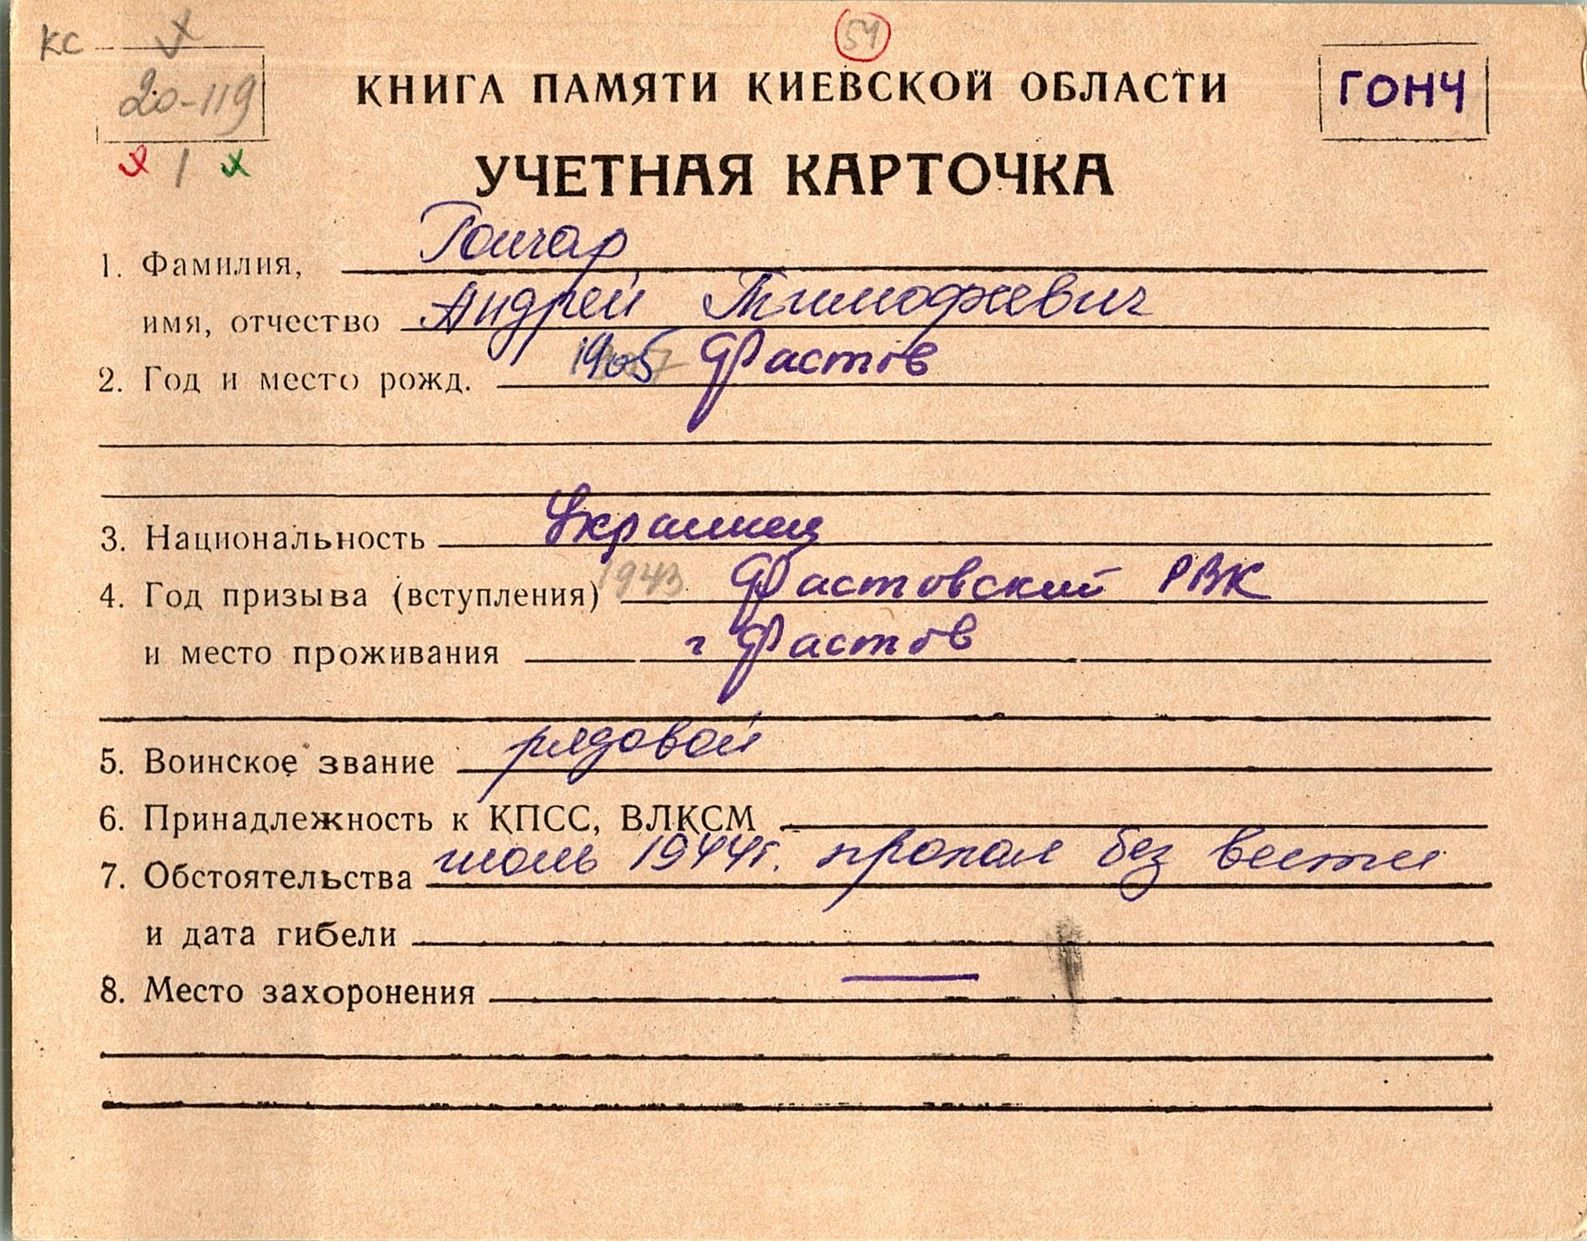 КС
54
20-119
КНИГА ПАМЯТИ КИЕВСКОЙ ОБЛАСТИ
ГОНЧ
УЧЕТНАЯ КАРТОЧКА
1. Фамилия, Гончар
имя, отчество Андрей Тимофеевич
2. Год и место рожд. 1905 Фастов
3. Национальность Украинец
4. Год призыва (вступления) 1943 Фастовский РВК
и место проживания г Фастов
5. Воинское звание рядовой
6. Принадлежность к КПСС, ВЛКСМ
7. Обстоятельства июль 1944г. пропал без вести
и дата гибели
8. Место захоронения —